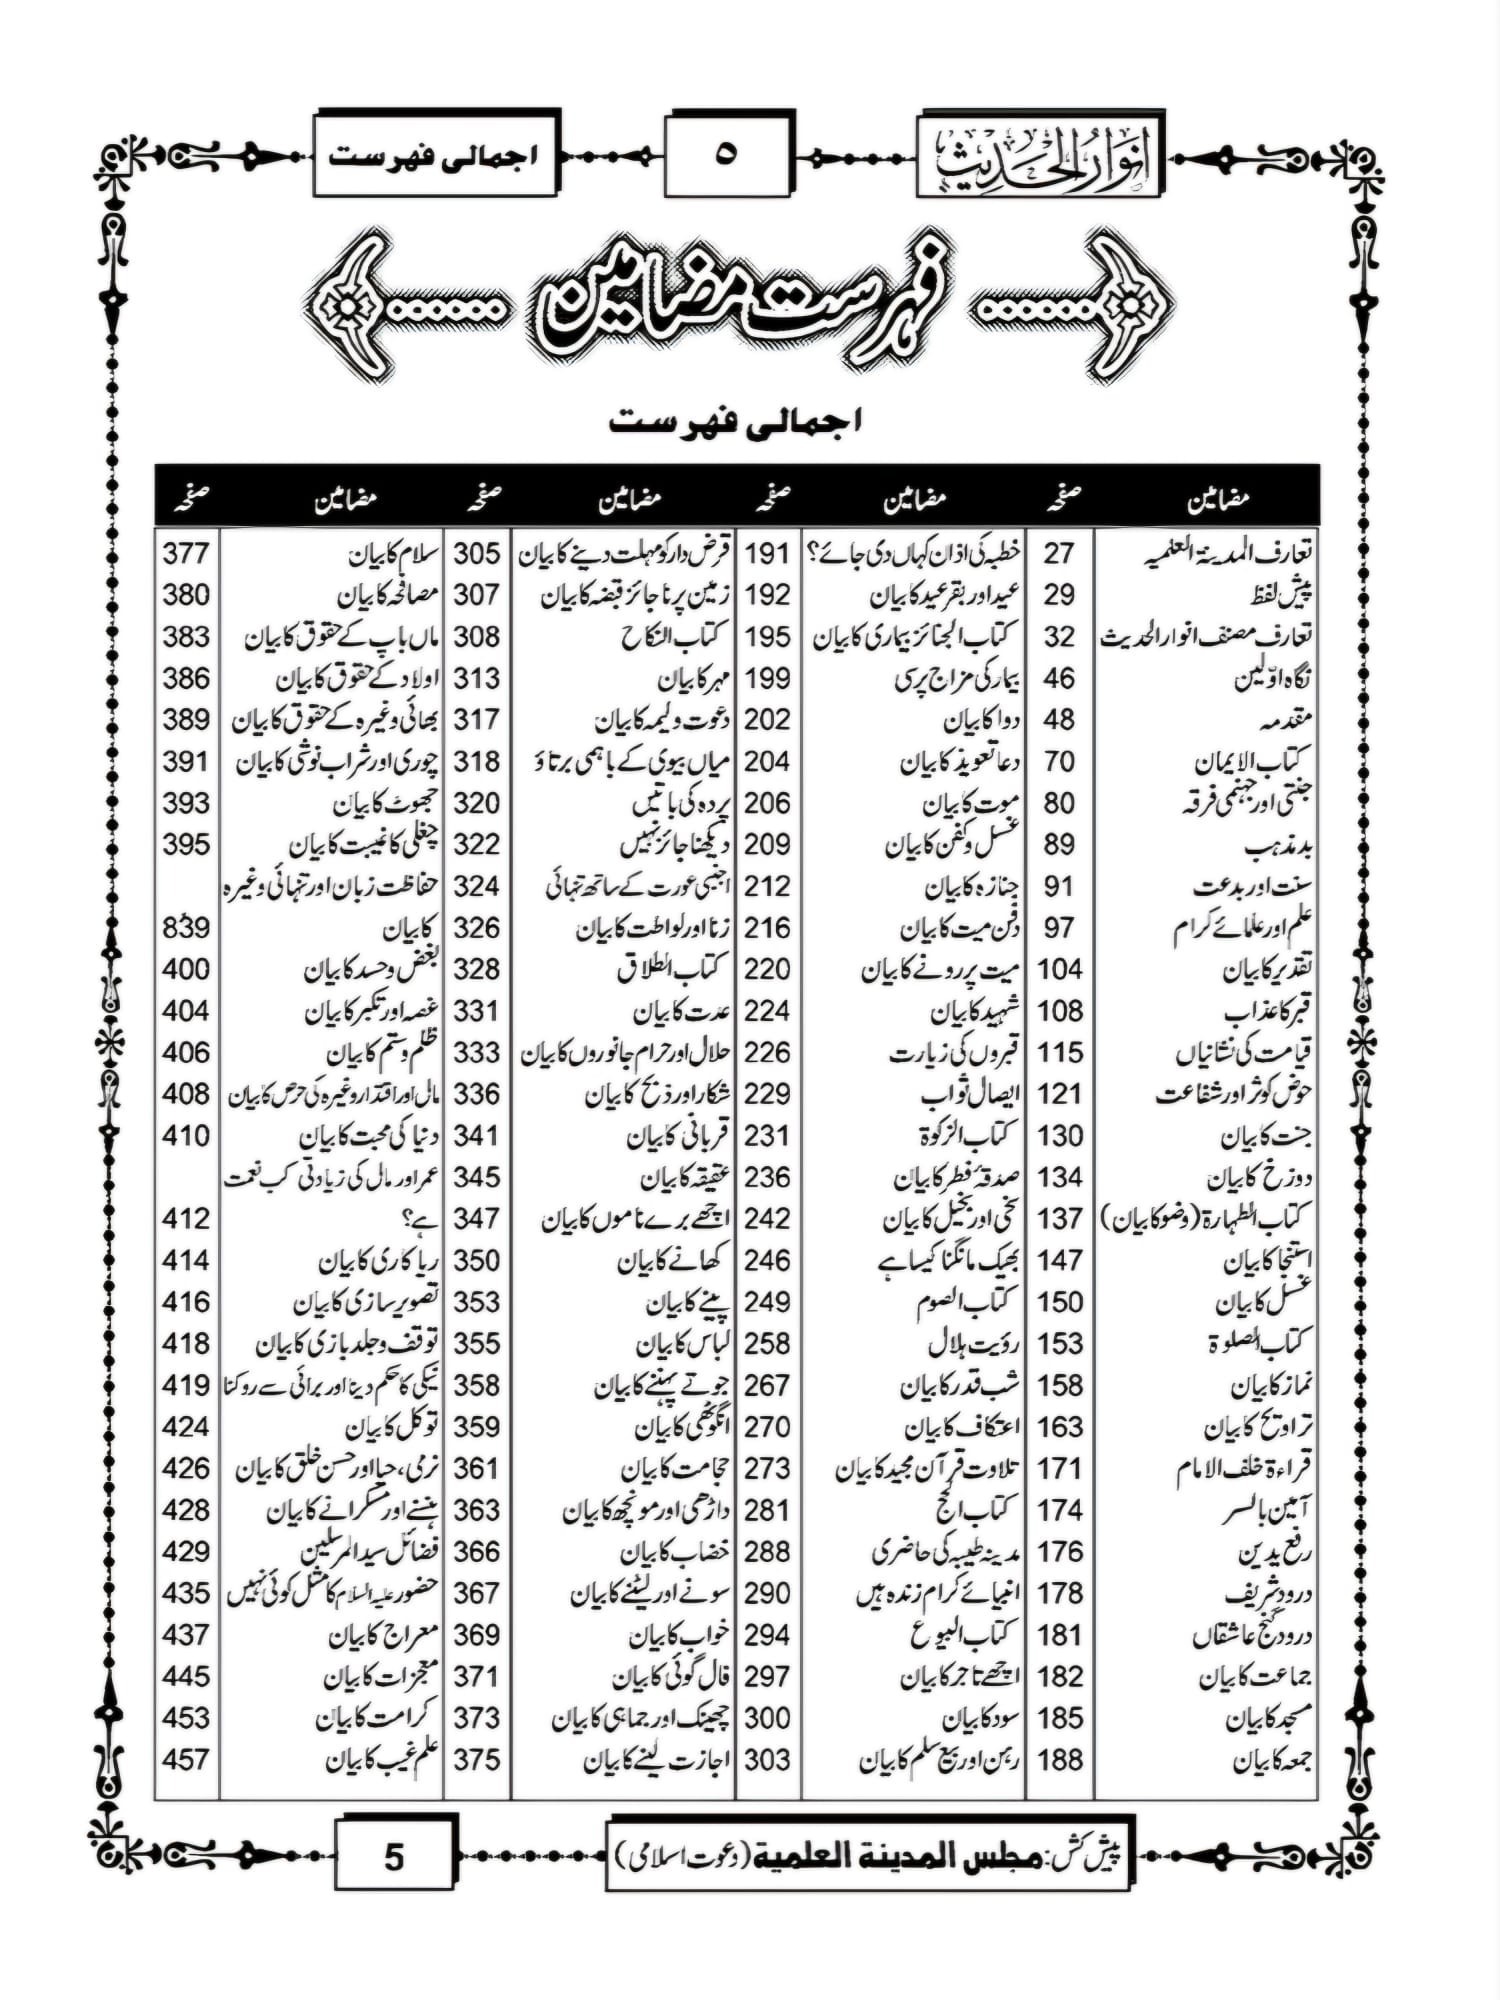 انوار الحدیث
۵
اجمالی فهرست
فہرست مضامین
اجمالی فهرست
مضامین صفحہ مضامین صفحہ مضامین صفحہ مضامین صفحہ
تعارف المدینۃ العلمیہ 27 خطبہ کی اذان کہاں دی جائے؟ 191 قرض دار کو مہلت دینے کا بیان 305 سلام کا بیان 377
پیش لفظ 29 عید اور بقر عید کا بیان 192 زمین پر ناجائز قبضہ کا بیان 307 مصافحہ کا بیان 380
تعارف مصنف انوار الحدیث 32 کتاب الجنائز بیماری کا بیان 195 کتاب النکاح 308 ماں باپ کے حقوق کا بیان 383
نگاہ اوّلین 46 بیمار کی مزاج پرسی 199 مہر کا بیان 313 اولاد کے حقوق کا بیان 386
مقدمہ 48 دوا کا بیان 202 دعوت ولیمہ کا بیان 317 بھائی وغیرہ کے حقوق کا بیان 389
کتاب الایمان 70 دعا تعویذ کا بیان 204 میاں بیوی کے باہمی برتاؤ 318 چوری اور شراب نوشی کا بیان 391
جنتی اور جہنمی فرقہ 80 موت کا بیان 206 پردہ کی باتیں 320 جھوٹ کا بیان 393
بد مذہب 89 غسل و کفن کا بیان 209 دیکھنا جائز نہیں 322 چغلی کا غیبت کا بیان 395
سنت اور بدعت 91 جنازہ کا بیان 212 اجنبی عورت کے ساتھ تنہائی 324 حفاظت زبان اور تنہائی وغیرہ
علم اور علمائے کرام 97 دفن میت کا بیان 216 زنا اور لواطت کا بیان 326 کا بیان 839
تقدیر کا بیان 104 میت پر رونے کا بیان 220 کتاب الطلاق 328 بغض و حسد کا بیان 400
قبر کا عذاب 108 شہید کا بیان 224 عدت کا بیان 331 غصہ اور تکبر کا بیان 404
قیامت کی نشانیاں 115 قبروں کی زیارت 226 حلال اور حرام جانوروں کا بیان 333 ظلم و ستم کا بیان 406
حوض کوثر اور شفاعت 121 ایصال ثواب 229 شکار اور ذبح کا بیان 336 مال اور اقتدار وغیرہ کی حرص کا بیان 408
جنت کا بیان 130 کتاب الزکوۃ 231 قربانی کا بیان 341 دنیا کی محبت کا بیان 410
دوزخ کا بیان 134 صدقۂ فطر کا بیان 236 عقیقہ کا بیان 345 عمر اور مال کی زیادتی کب نعمت
کتاب الطہارۃ (وضو کا بیان) 137 سخی اور بخیل کا بیان 242 اچھے برے ناموں کا بیان 347 ہے؟ 412
استنجا کا بیان 147 بھیک مانگنا کیسا ہے 246 کھانے کا بیان 350 ریا کاری کا بیان 414
غسل کا بیان 150 کتاب الصوم 249 پینے کا بیان 353 تصویر سازی کا بیان 416
کتاب الصلوۃ 153 رؤیت ہلال 258 لباس کا بیان 355 توقف و جلد بازی کا بیان 418
نماز کا بیان 158 شب قدر کا بیان 267 جوتے پہننے کا بیان 358 نیکی کا حکم دینا اور برائی سے روکنا 419
تراویح کا بیان 163 اعتکاف کا بیان 270 انگوٹھی کا بیان 359 توکل کا بیان 424
قراءۃ خلف الامام 171 تلاوت قرآن مجید کا بیان 273 حجامت کا بیان 361 نرمی، حیا اور حسن خلق کا بیان 426
آمین بالسر 174 کتاب الحج 281 داڑھی اور مونچھ کا بیان 363 ہنسنے اور مسکرانے کا بیان 428
رفع یدین 176 مدینہ طیبہ کی حاضری 288 خضاب کا بیان 366 فضائل سید المرسلین 429
درود شریف 178 انبیائے کرام زندہ ہیں 290 سونے اور لیٹنے کا بیان 367 حضور علیہ السلام کا مثل کوئی نہیں 435
درود گنج عاشقاں 181 کتاب البیوع 294 خواب کا بیان 369 معراج کا بیان 437
جماعت کا بیان 182 اچھے تاجر کا بیان 297 فال گوئی کا بیان 371 معجزات کا بیان 445
مسجد کا بیان 185 سود کا بیان 300 چھینک اور جماہی کا بیان 373 کرامت کا بیان 453
جمعہ کا بیان 188 رہن اور بیع سلم کا بیان 303 اجازت لینے کا بیان 375 علم غیب کا بیان 457
پیش کش: مجلس المدینة العلمیة (دعوت اسلامی)
5